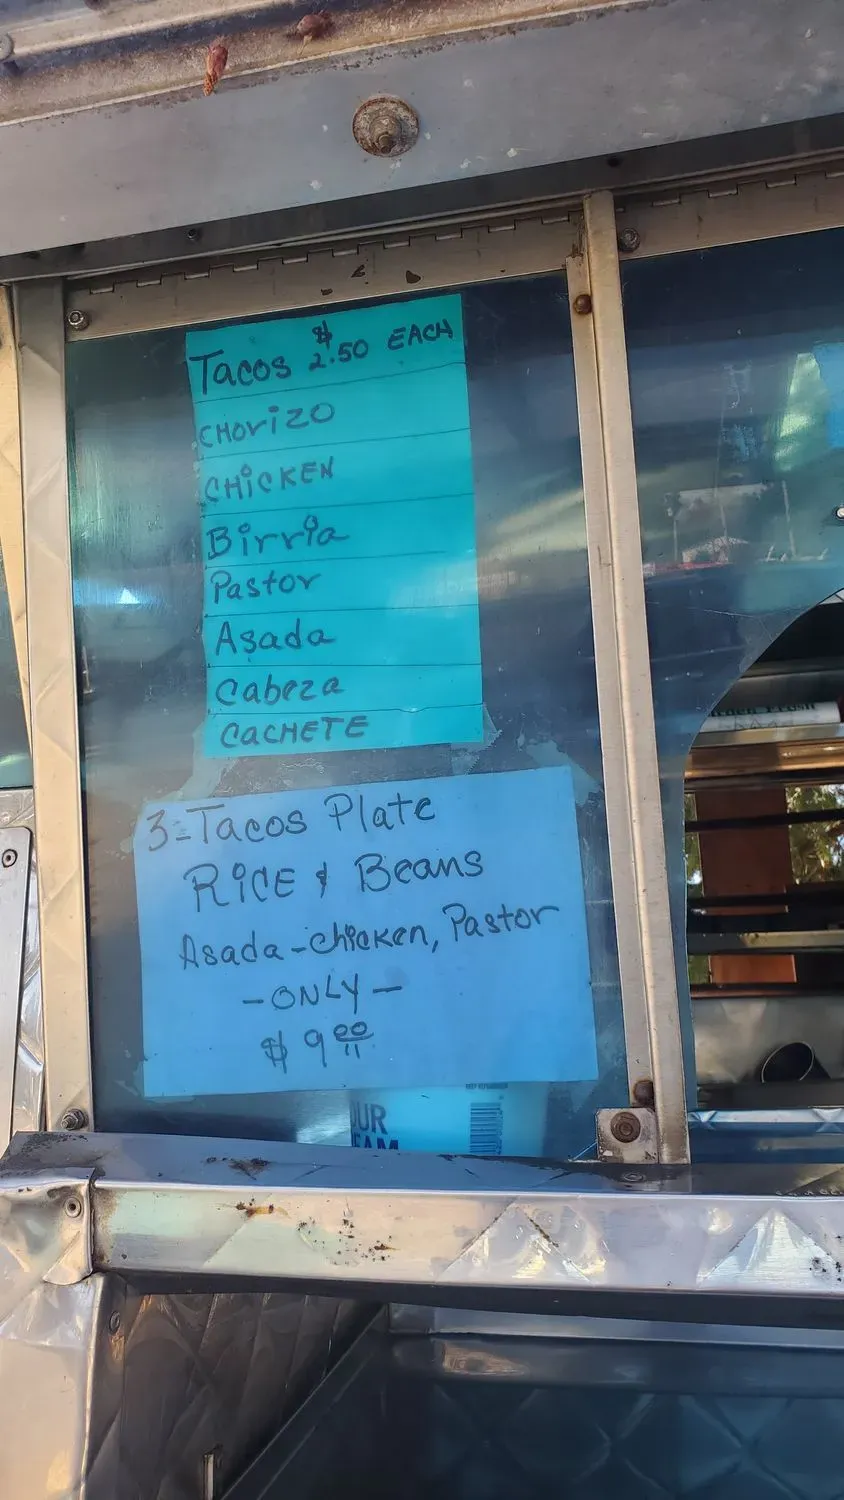 Tacos $2.50 EACH
CHorizo
CHiCKEN
Birria
Pastor
Asada
Cabeza
CaCHETE
3-Tacos Plate
RiCE & Beans
Asada-chicken, Pastor
-ONLY-
$ 9.00
OUR